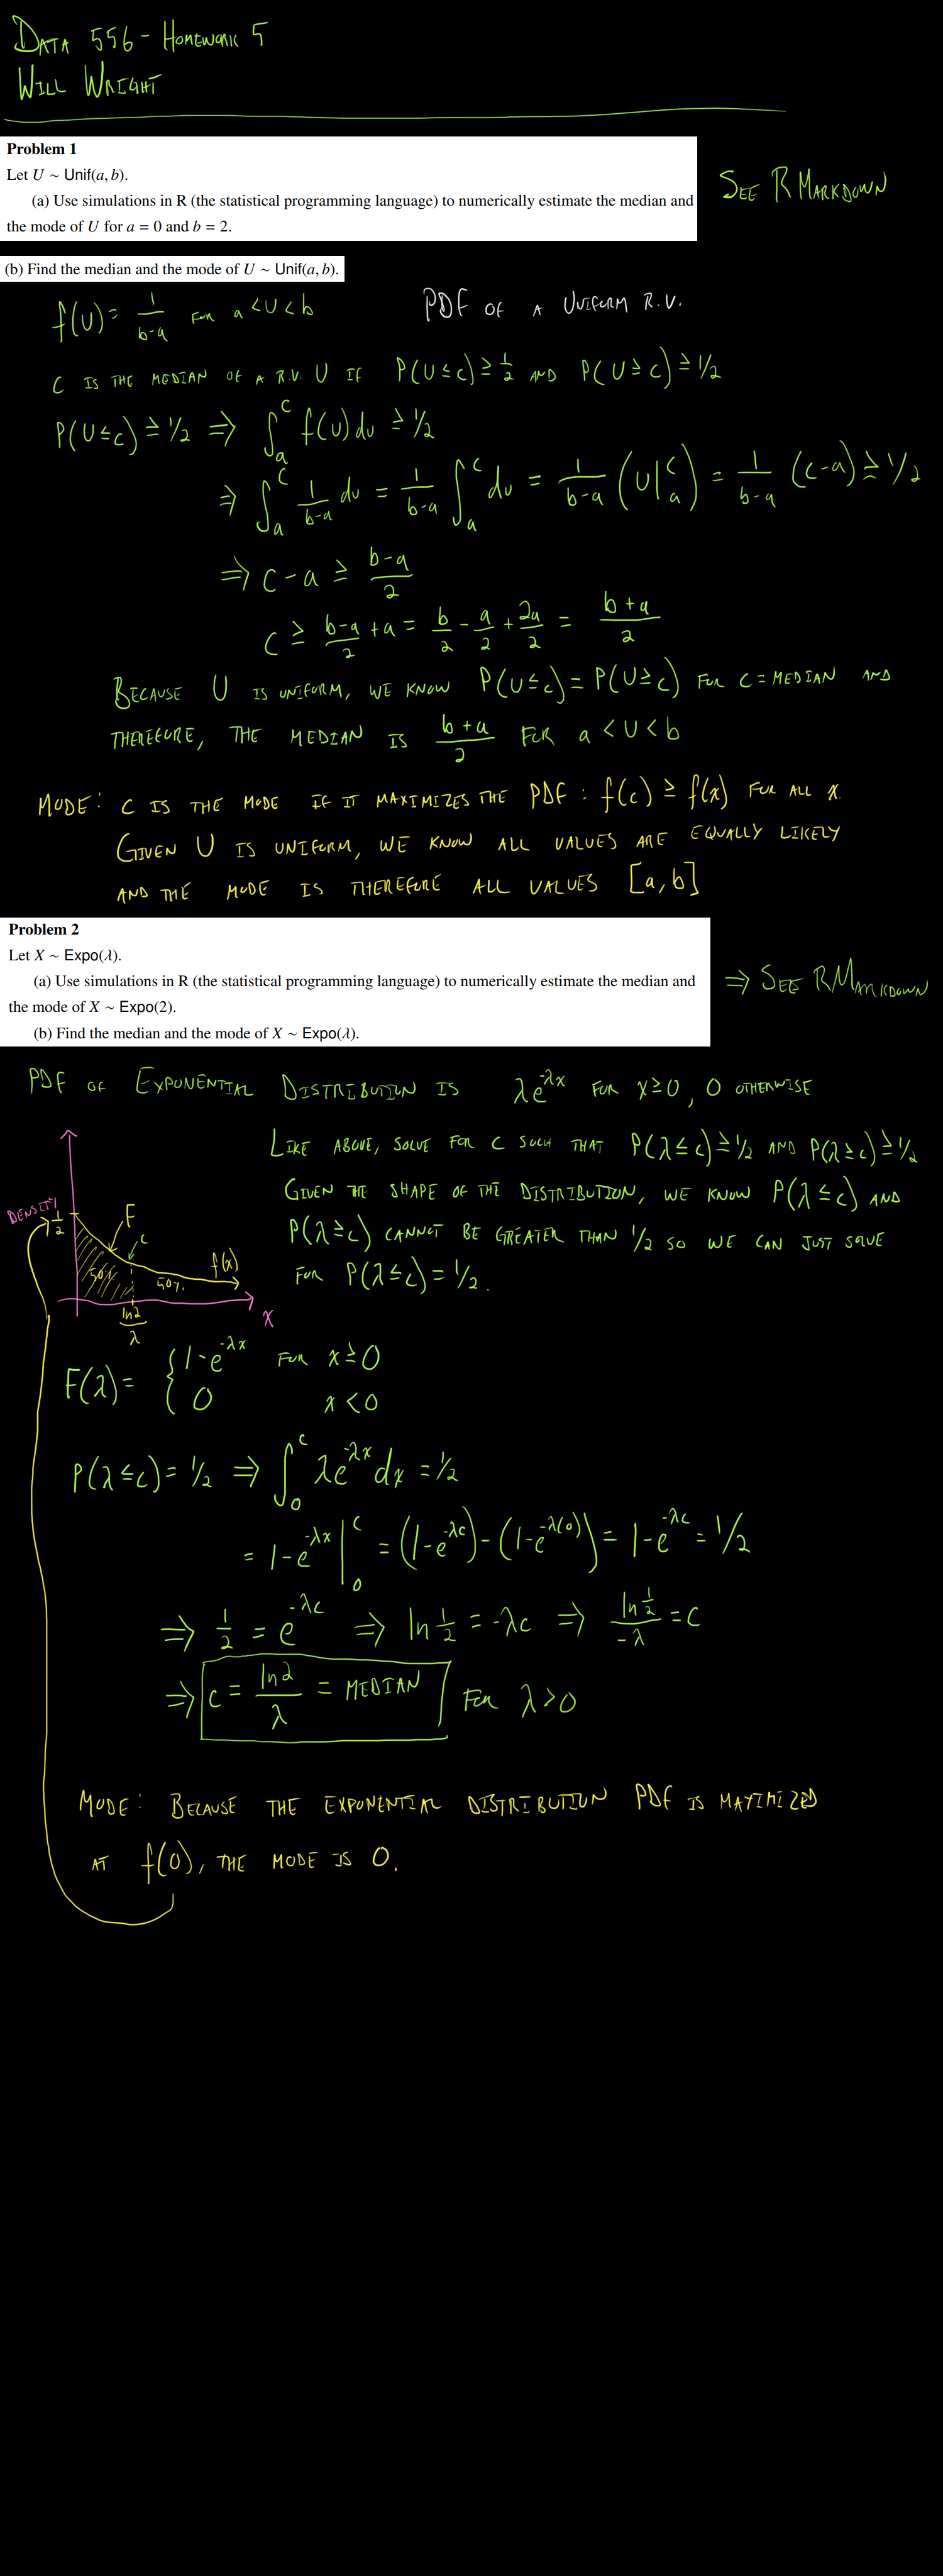 DATA 556 - HOMEWORK 5
WILL WRIGHT
Problem 1
Let U ~ Unif(a, b).
(a) Use simulations in R (the statistical programming language) to numerically estimate the median and
the mode of U for a = 0 and b = 2.
SEE R MARKDOWN
(b) Find the median and the mode of U ~ Unif(a, b).
f(U) = 1/(b-a) FOR a < U < b PDF OF A UNIFORM R.V.
C IS THE MEDIAN OF A R.V. U IF P(U ≤ c) ≥ 1/2 AND P(U ≥ c) ≥ 1/2
P(U ≤ c) ≥ 1/2 ⇒ ∫_a^c f(u) du ≥ 1/2
⇒ ∫_a^c 1/(b-a) du = 1/(b-a) ∫_a^c du = 1/(b-a) (U|_a^c) = 1/(b-a) (c-a) ≥ 1/2
⇒ c - a ≥ (b-a)/2
c ≥ (b-a)/2 + a = b/2 - a/2 + 2a/2 = (b+a)/2
BECAUSE U IS UNIFORM, WE KNOW P(U ≤ c) = P(U ≥ c) FOR C = MEDIAN AND
THEREFORE, THE MEDIAN IS (b+a)/2 FOR a < U < b
MODE: C IS THE MODE IF IT MAXIMIZES THE PDF: f(c) ≥ f(x) FOR ALL X.
GIVEN U IS UNIFORM, WE KNOW ALL VALUES ARE EQUALLY LIKELY
AND THE MODE IS THEREFORE ALL VALUES [a, b]
Problem 2
Let X ~ Expo(λ).
(a) Use simulations in R (the statistical programming language) to numerically estimate the median and
the mode of X ~ Expo(2).
(b) Find the median and the mode of X ~ Expo(λ).
⇒ SEE R MARKDOWN
PDF OF EXPONENTIAL DISTRIBUTION IS λe^(-λx) FOR X ≥ 0, 0 OTHERWISE
LIKE ABOVE, SOLVE FOR C SUCH THAT P(λ ≤ c) ≥ 1/2 AND P(λ ≥ c) ≥ 1/2
GIVEN THE SHAPE OF THE DISTRIBUTION, WE KNOW P(λ ≤ c) AND
P(λ ≥ c) CANNOT BE GREATER THAN 1/2 SO WE CAN JUST SOLVE
FOR P(λ ≤ c) = 1/2.
DENSITY
1/2
F
c
f(x)
50%
50%
ln2/λ
X
F(λ) = { 1 - e^(-λx) FOR x ≥ 0
0 x < 0
P(λ ≤ c) = 1/2 ⇒ ∫_0^c λe^(-λx) dx = 1/2
= 1 - e^(-λx) |_0^c = (1 - e^(-λc)) - (1 - e^(-λ(0))) = 1 - e^(-λc) = 1/2
⇒ 1/2 = e^(-λc) ⇒ ln 1/2 = -λc ⇒ (ln 1/2)/(-λ) = c
⇒ c = ln2/λ = MEDIAN FOR λ > 0
MODE: BECAUSE THE EXPONENTIAL DISTRIBUTION PDF IS MAXIMIZED
AT f(0), THE MODE IS 0.